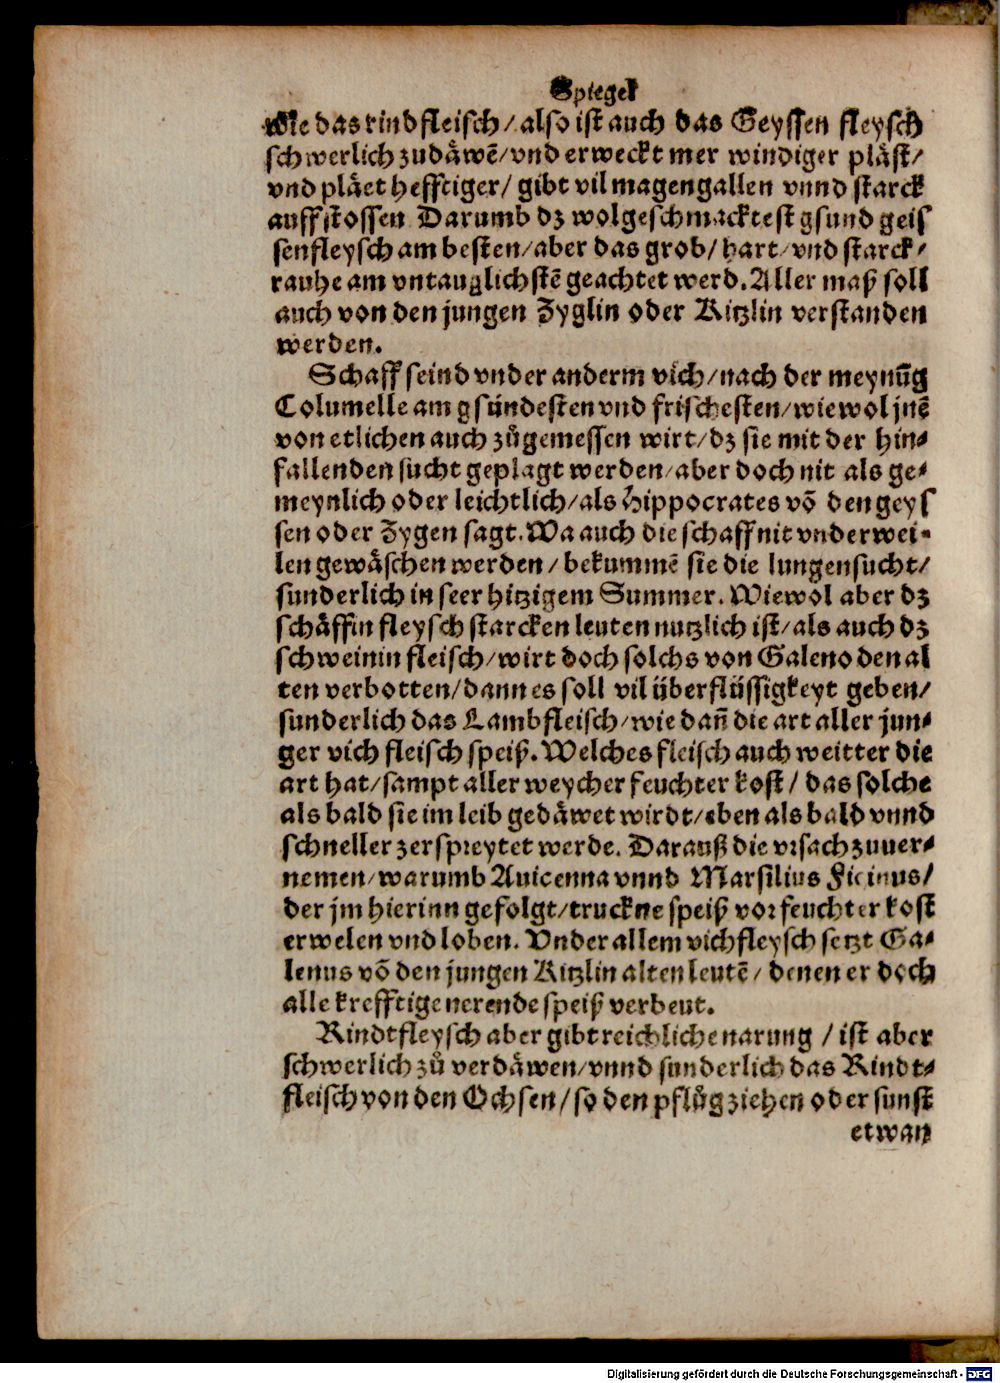 Spiegel
wie das rindfleisch/ also ist auch das Geyssen fleysch
schwerlich zudäwē/ vnd erweckt mer windiger pläst/
vnd pläet hefftiger/ gibt vil magengallen vnnd starck
auffstossen Darumb dz wolgeschmacktest gsund geis
senfleysch am besten/ aber das grob/ hart/ vnd starck/
rauhe am vntauglichstē geachtet werd. Aller maß soll
auch von den jungen Zyglin oder Kitzlin verstanden
werden.
Schaff seind vnder anderm vich/ nach der meynūg
Columelle am gsündesten vnd frischesten/ wiewol jnē
von etlichen auch zůgemessen wirt/ dz sie mit der hin⸗
fallenden sucht geplagt werden/ aber doch nit als ge⸗
meynlich oder leichtlich/ als Hippocrates vō den geys
sen oder Zygen sagt. Wa auch die schaff nit vnderwei⸗
len gewäschen werden/ bekummē sie die lungensucht/
sunderlich in seer hitzigem Summer. Wiewol aber dz
schäffin fleysch starcken leuten nutzlich ist/ als auch dz
schweinin fleisch/ wirt doch solchs von Galeno den al
ten verbotten/ dann es soll vil überflüssigkeyt geben/
sunderlich das Lambfleisch/ wie dañ die art aller jun⸗
ger vich fleisch speiß. Welches fleisch auch weitter die
art hat/ sampt aller weycher feuchter kost/ das solche
als bald sie im leib gedäwet wirdt/ eben als bald vnnd
schneller zerspreytet werde. Darauß die vrsach zuuer⸗
nemen/ warumb Auicenna vnnd Marsilius Ficinus/
der jm hierinn gefolgt/ truckne speiß vor feuchter kost
erwelen vnd loben. Vnder allem vichfleysch setzt Ga⸗
lenus vō den jungen Kitzlin alten leutē/ denen er doch
alle krefftige nerende speiß verbeut.
Rindtfleysch aber gibt reichliche narung / ist aber
schwerlich zů verdäwen/ vnnd sunderlich das Rindt⸗
fleisch von den Ochsen/ so den pflůg ziehen oder sunst
etwan
Digitalisierung gefördert durch die Deutsche Forschungsgemeinschaft - DFG